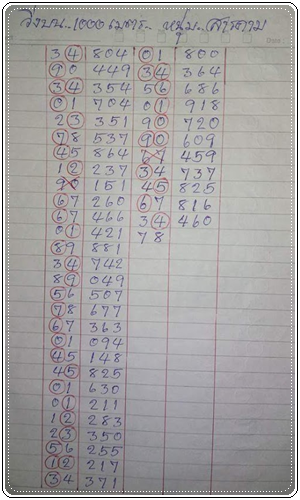 วิ่งบน..1000 เมตร.. หนุ่ม..สารคาม
34 804 01 800
90 449 34 364
34 354 56 686
01 704 01 918
23 351 90 720
78 537 90 609
45 864 67 459
12 237 34 737
90 151 45 825
67 260 67 816
67 466 34 460
01 421 78
89 881
34 742
89 049
56 507
78 677
67 363
01 094
45 148
45 825
01 630
01 211
12 283
23 350
56 255
12 217
34 371